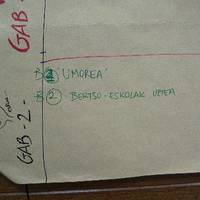 GAB-
B 1 'UMOREA'
B 2 BERTSO-ESKOLAK UZTEA
GAB-2-